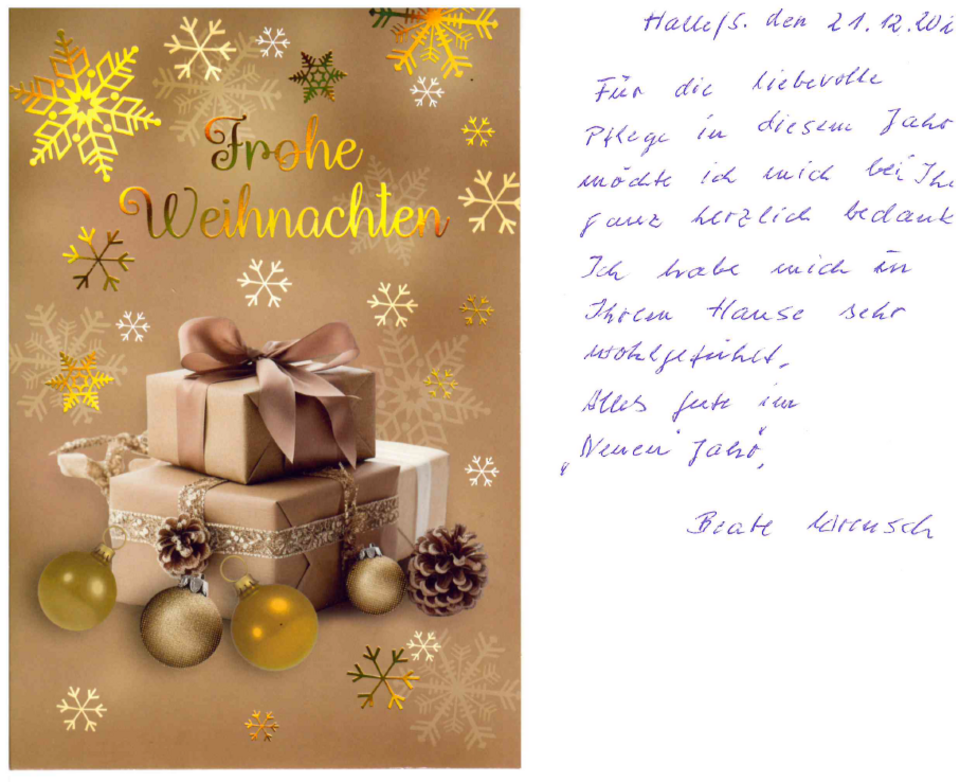 Frohe
Weihnachten
Halle/S. den 21.12.202
Für die liebevolle
Pflege in diesem Jahr
möchte ich mich bei Ihn
ganz herzlich bedank
Ich habe mich in
Ihrem Hause sehr
wohlgefühlt.
Alles gute im
"Neuen Jahr"
Beate